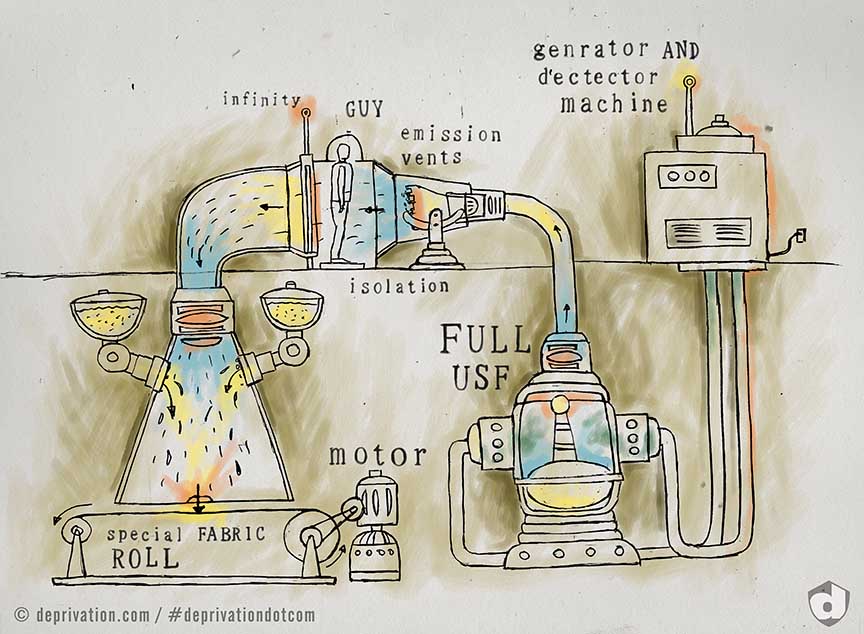 genrator AND
d'ectector
machine
infinity
GUY
emission
vents
isolation
FULL
USF
motor
special FABRIC
ROLL
© deprivation.com / #deprivationdotcom
d